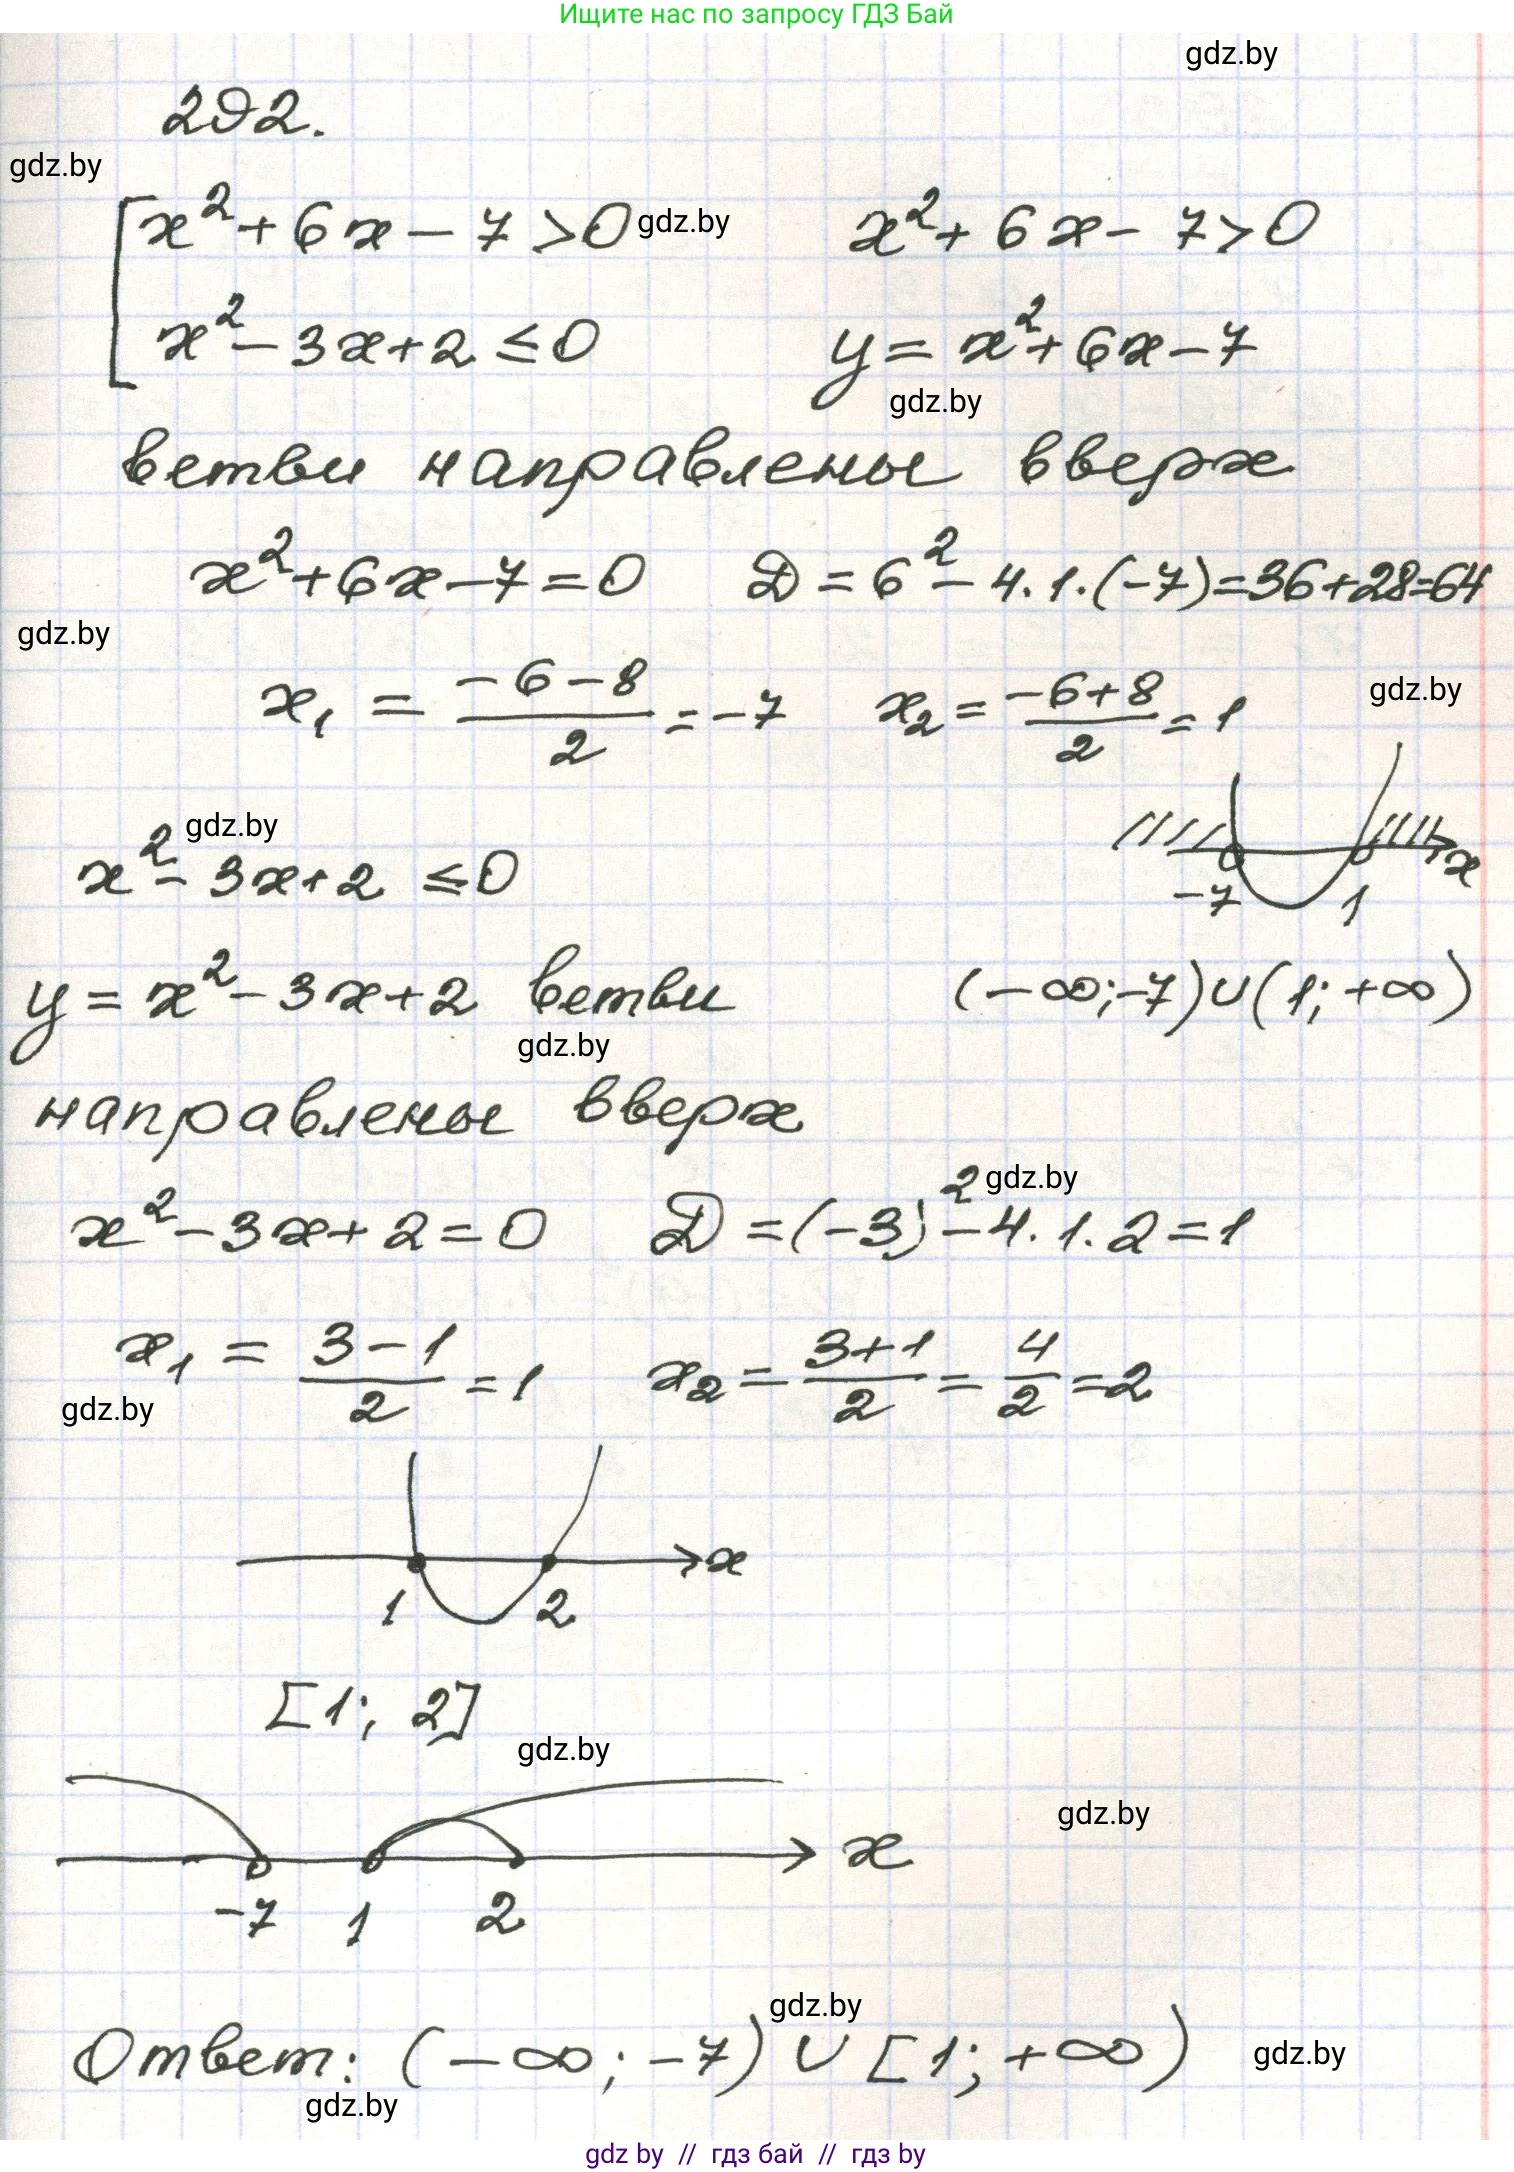 Ищите нас по запросу ГДЗ Бай
gdz.by
292.
gdz.by
x² + 6x − 7 > 0 gdz.by x² + 6x − 7 > 0
x² − 3x + 2 ≤ 0 y = x² + 6x − 7
gdz.by
ветви направлены вверх
x² + 6x − 7 = 0 D = 6² − 4·1·(−7) = 36 + 28 = 64
gdz.by
x₁ = (−6 − 8)/2 = −7 x₂ = (−6 + 8)/2 = 1 gdz.by
gdz.by
x² − 3x + 2 ≤ 0
−7 1 x
y = x² − 3x + 2 ветви (−∞; −7) ∪ (1; +∞)
gdz.by
направлены вверх
gdz.by
x² − 3x + 2 = 0 D = (−3)² − 4·1·2 = 1
x₁ = (3 − 1)/2 = 1 x₂ = (3 + 1)/2 = 4/2 = 2
gdz.by
x
1 2
[1; 2]
gdz.by
gdz.by
x
−7 1 2
gdz.by
Ответ: (−∞; −7) ∪ [1; +∞) gdz.by
gdz.by
gdz by // гдз бай // гдз by